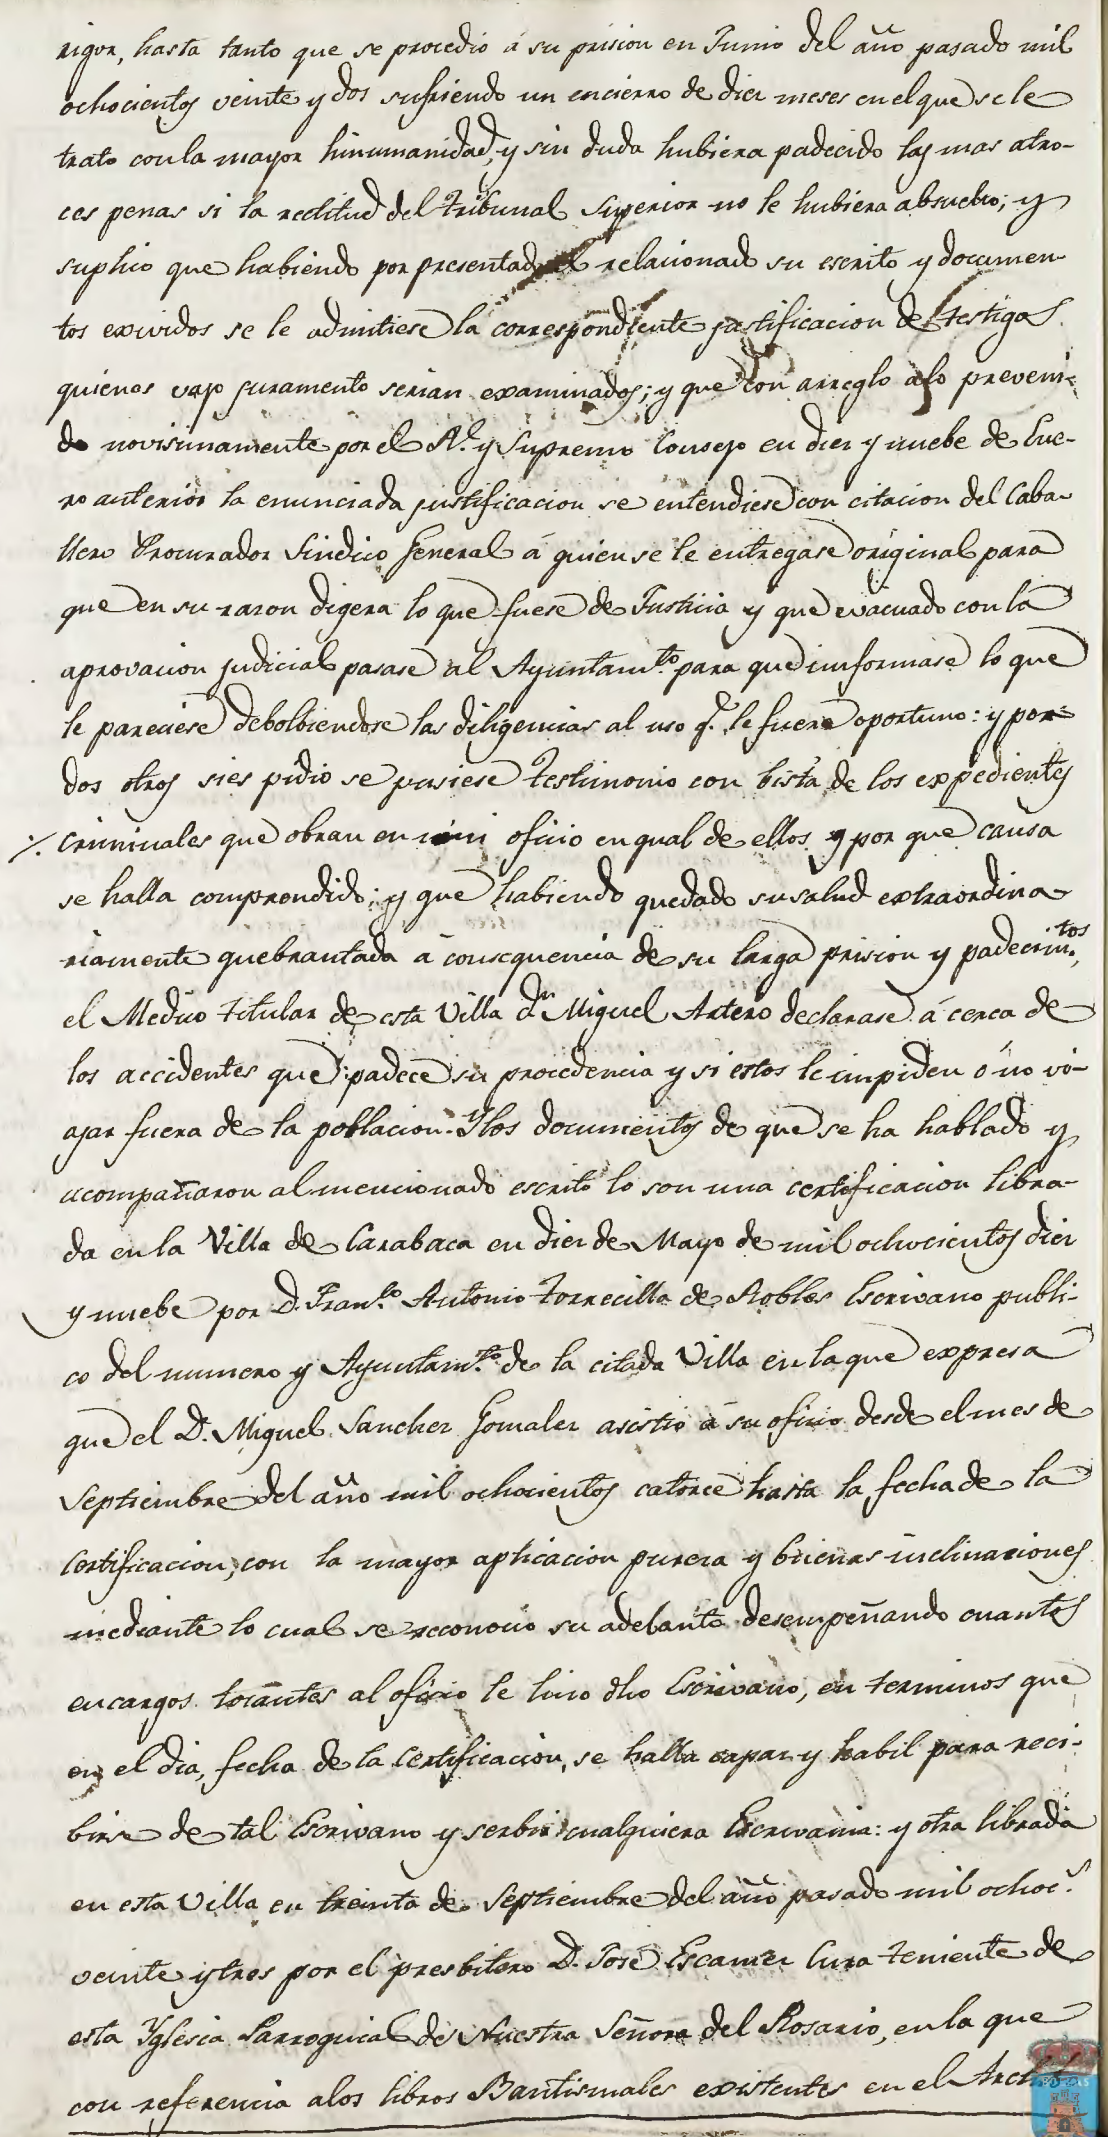 rigor, hasta tanto que se procedio á su prision en Junio del año pasado mil
ochocientos veinte y dos sufriendo un encierro de diez meses en el que se le
trato con la mayor hinumanidad, y sin duda hubiera padecido las mas atro-
ces penas si la rectitud del Tribunal Superior no le hubiera absuelto; y
suplico que habiendo por presentado el relacionado su escrito y documen-
tos exividos se le admitiese la correspondiente justificacion de testigos
quienes vajo juramento serian examinados; y que con arreglo alo preveni-
do novisimamente por el Rl. y Supremo Consejo en diez y nuebe de Ene-
ro anterior la enunciada justificacion se entendiese con citacion del Caba-
llero Procurador Sindico General á quien se le entregase original para
que en su razon digera lo que fuese de Justicia y que evacuado con la
aprovacion judicial pasase al Ayuntamto. para que imformase lo que
le pareciese debolbiendose las diligencias al uso q. le fuere oportuno: y por
dos otros sies pidio se pusiese testimonio con bista de los expedientes
criminales que obran en mi oficio en qual de ellos y por que causa
se halla comprendido; y que habiendo quedado su salud extraordina-
riamente quebrantada á consequencia de su larga prision y padecimtos.,
el Medico titular de esta Villa Dn. Miguel Artero declarase á cerca de
los accidentes que padece su procedencia y si estos le impiden ó no vi-
ajar fuera de la poblacion. Y los documentos de que se ha hablado y
acompañaron al mencionado escrito lo son una certificacion libra-
da en la Villa de Carabaca en diez de Mayo de mil ochocientos diez
y nuebe por D. Franco. Antonio Torrecilla de Robles Escrivano publi-
co del numero y Ayuntamto. de la citada Villa en la que expresa
que el D. Miguel Sanchez Gomalez asistio á su oficio desde el mes de
Septiembre del año mil ochocientos catorce hasta la fecha de la
Certificacion, con la mayor aplicacion pureza y buenas inclinaciones
mediante lo cual se reconocio su adelanto desempeñando cuantos
encargos tocantes al oficio le hizo dho Escrivano, en terminos que
en el dia, fecha de la Certificacion, se halla capaz y habil para reci-
birse de tal Escrivano y serbir cualquiera Escrivania: y otra librada
en esta Villa en treinta de Septiembre del año pasado mil ochocs.
veinte y tres por el presbitero D. José Escamez Cura teniente de
esta Yglesia Parroquial de Nuestra Señora del Rosario, en la que
con referencia alos libros Bautismales existentes en el Archibo